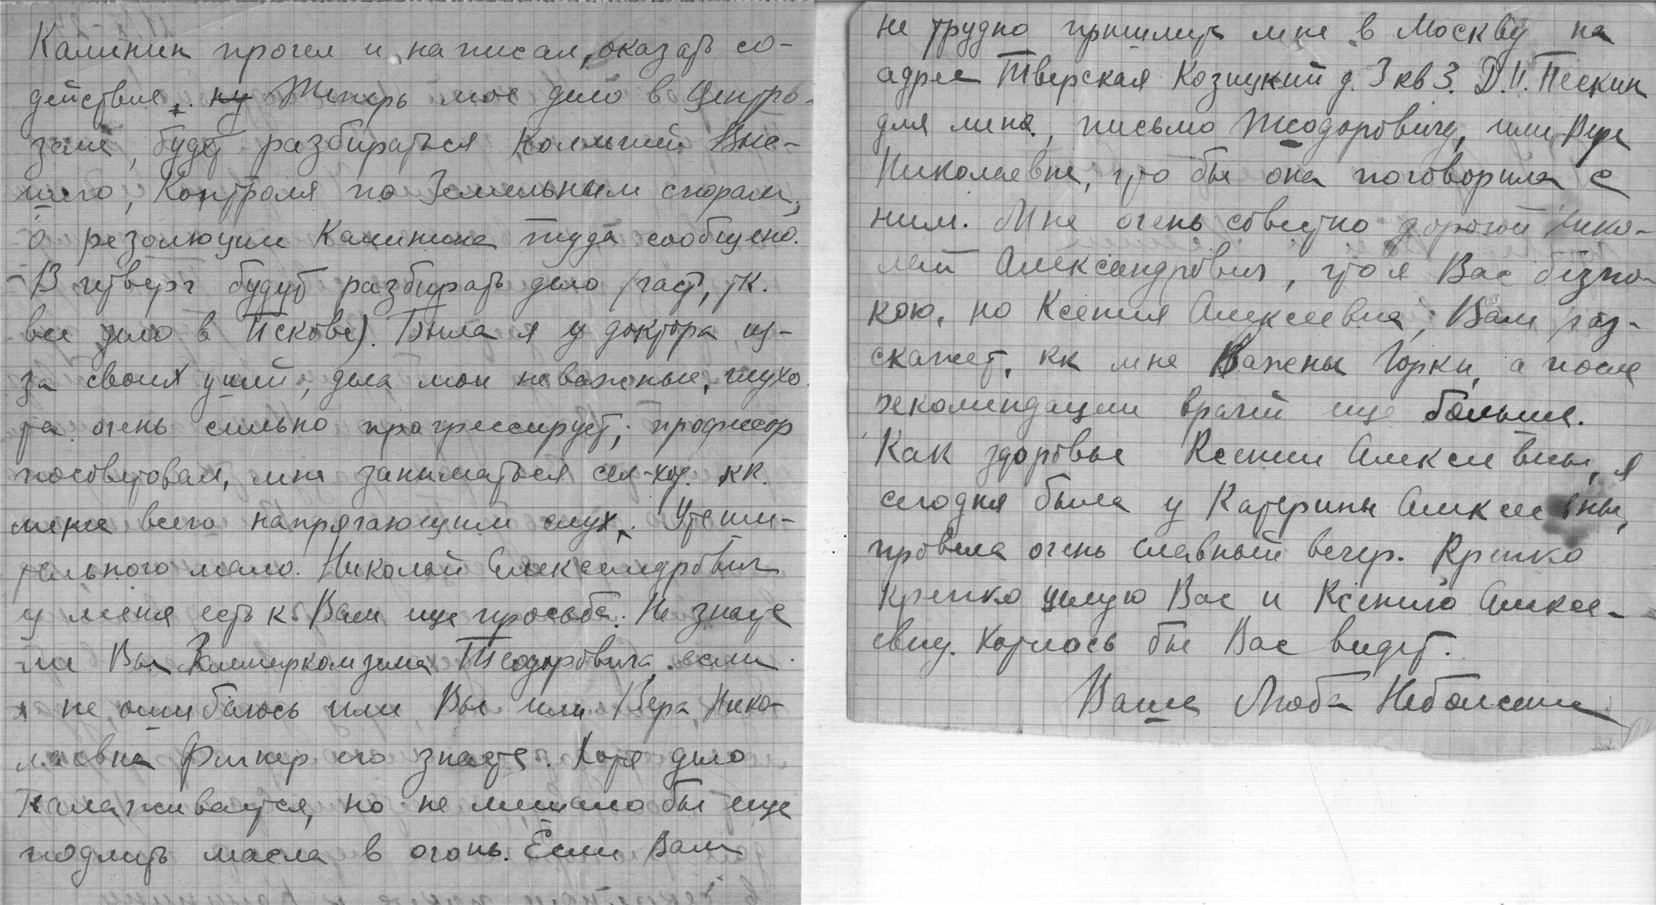 Калинин прочел и написал "оказать со-
действие". ну Теперь мое дело в Центро-
земе, будет разбираться Колегией Выс-
шего, Контроля по Земельным спорам,
о резолюции Калинина туда сообщено.
В четверг будут разбирать дело (част, тк.
все дело в Пскове). Была я у доктора из-
за своих ушей, дела мои неважные, глухо
та очень сильно прогрессирует; профессор
посоветовал, мне заниматься сел-хоз. кк.
менее всего напрягающим слух. Утеши-
тельного мало. Николай Александрович
у меня есть к Вам еще просьба. Не знаете
ли Вы Замнаркомзема Теодоровича, если
я не ошибаюсь или Вы или Вера Нико-
лаевна Фигнер его знаете. Хотя дело
налаживается, но не мешало бы еще
подлить масла в огонь. Если Вам
не трудно пришлите мне в Москву на
адрес Тверская Козицкий д. 3 кв 3. Д.И. Пескин
для меня, письмо Теодоровичу, или Вере
Николаевне, что бы она поговорила с
ним. Мне очень совестно дорогой Нико-
лай Александрович, что я Вас безпо-
кою, но Ксения Алексеевна, Вам раз-
скажет, кк мне Важены Горки, а после
рекомендации врачей еще больше.
Как здоровье Ксении Алексеевны, я
сегодня была у Катерины Алексеевны,
провела очень славный вечер. Крепко
крепко целую Вас и Ксению Алексе-
евну. Хотелось бы Вас видеть.
Ваша Люба Неболсина